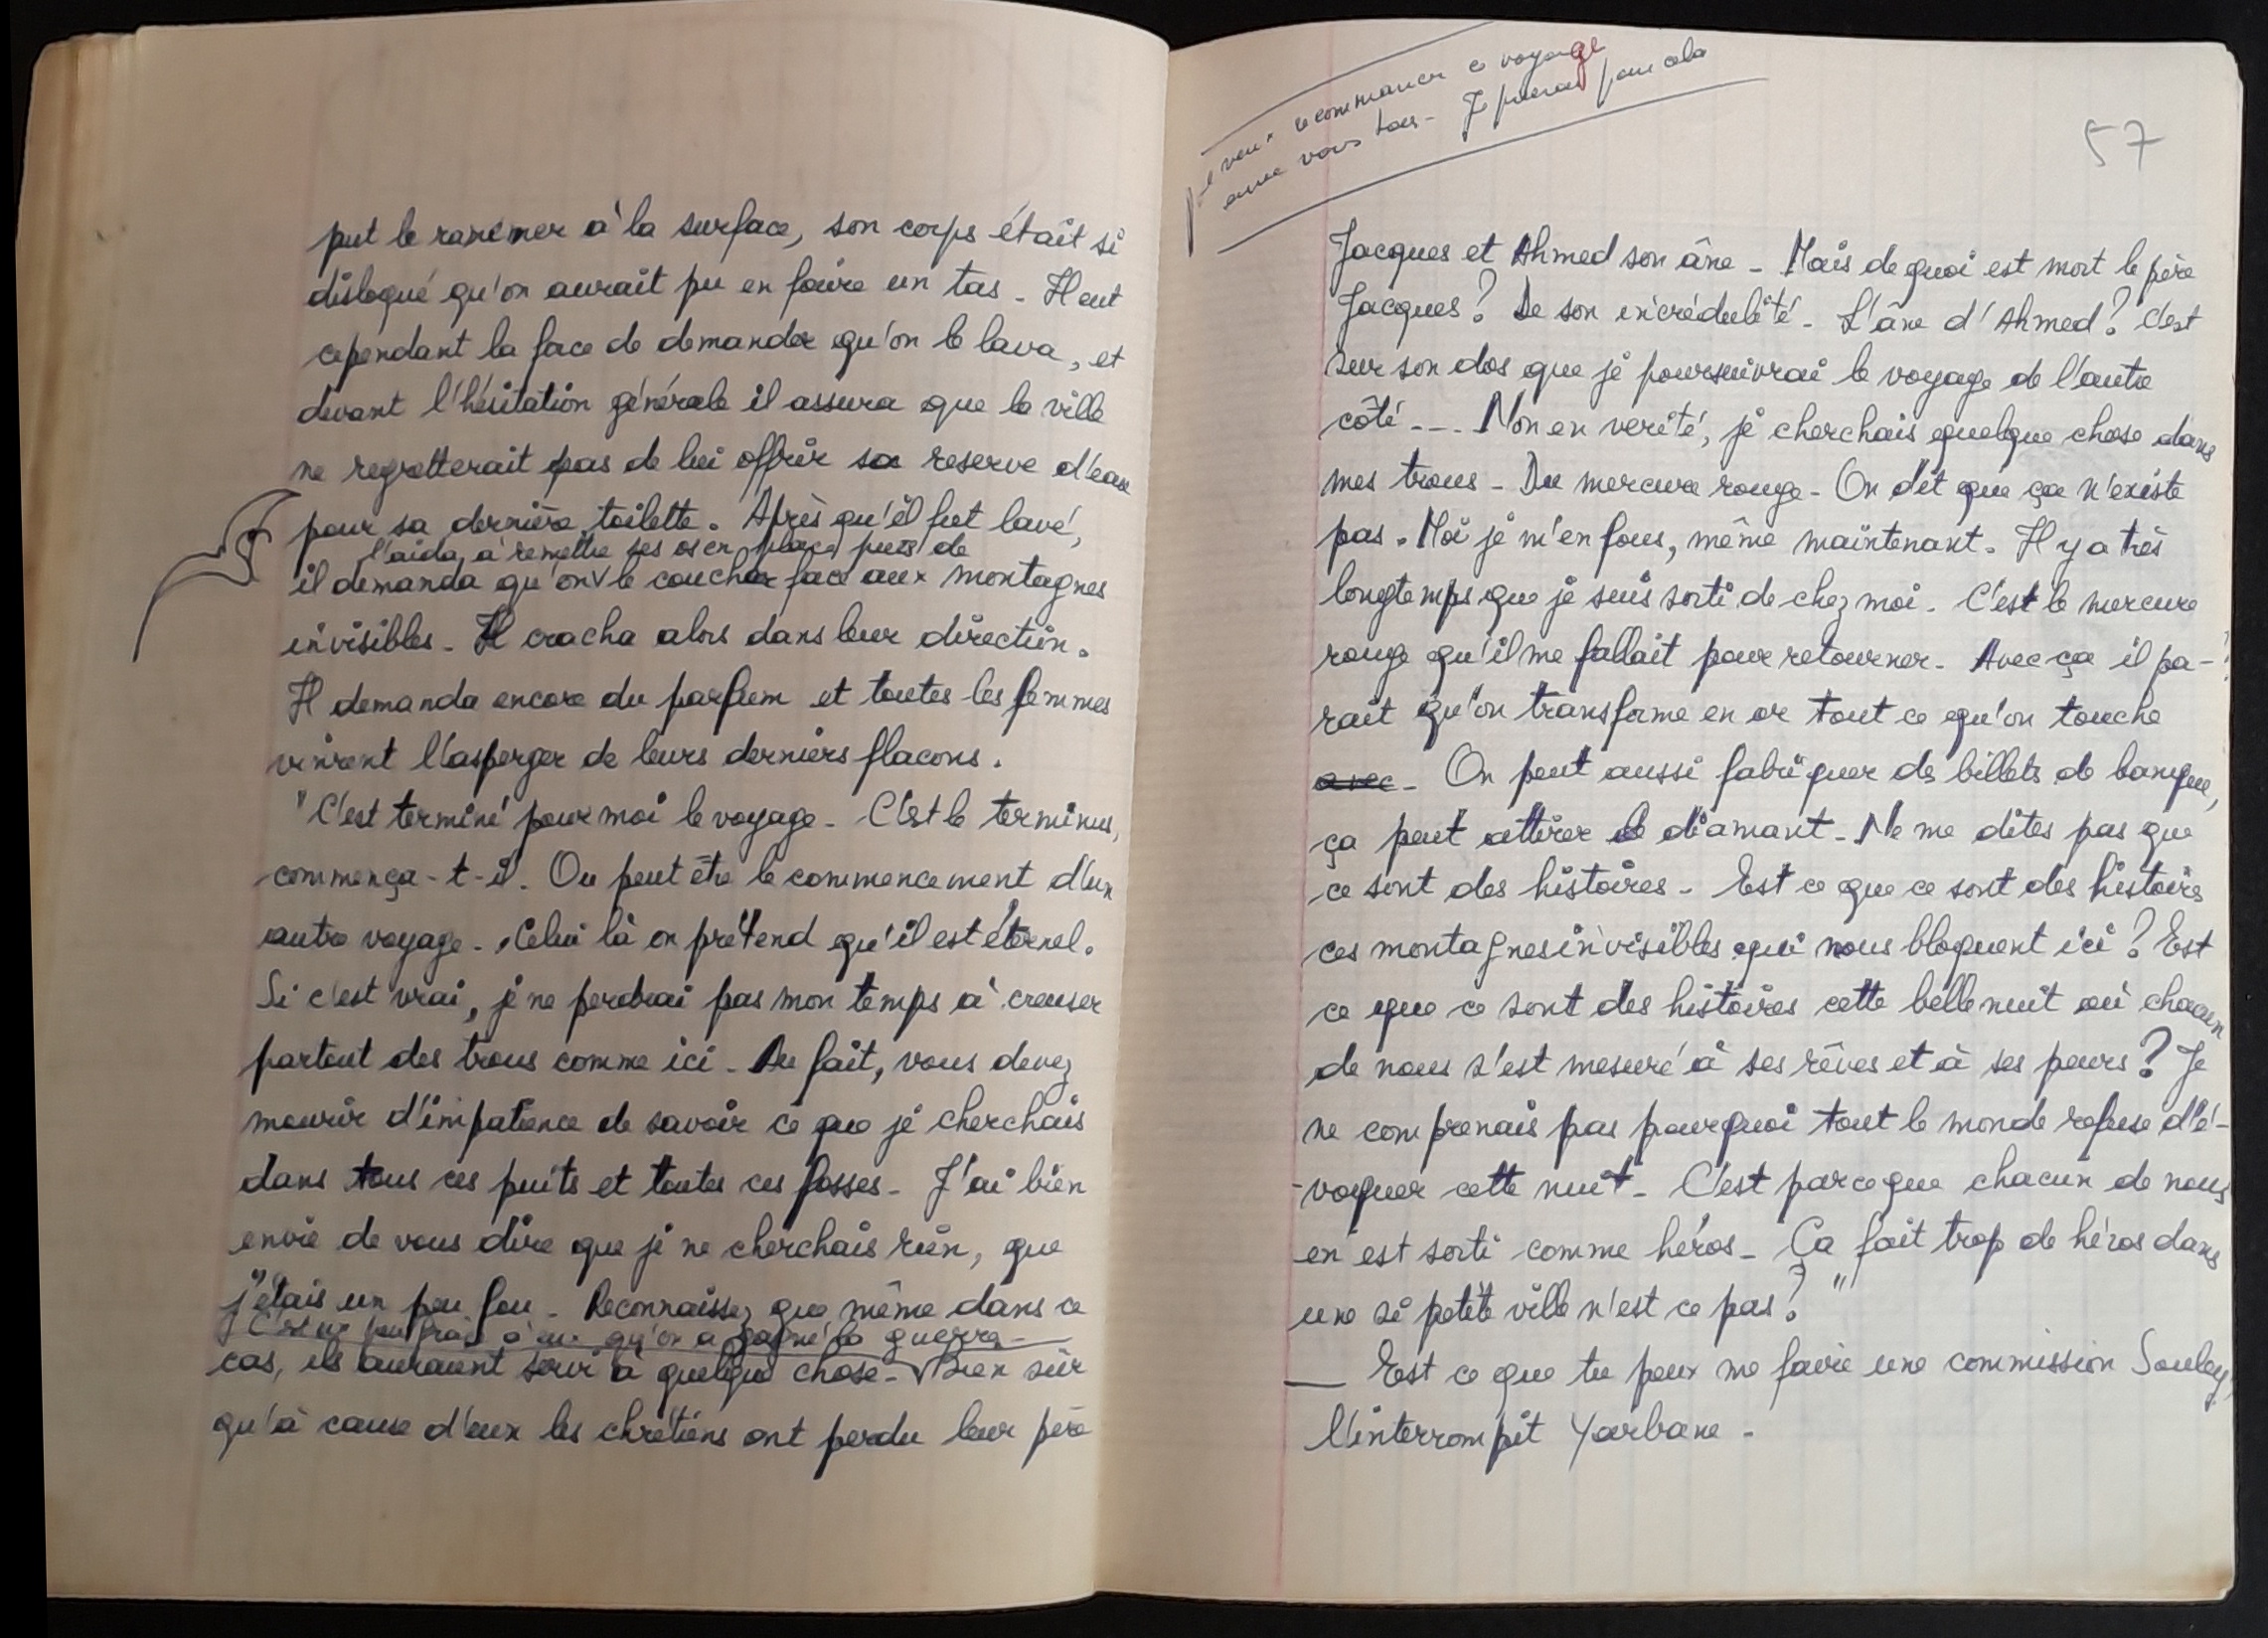 put le ramener à la surface, son corps était si
disloqué qu'on aurait pu en faire un tas - Il eut
cependant la face de demander qu'on le lava, et
devant l'hésitation générale il assura que la ville
ne regretterait pas de lui offrir sa reserve d'eau
pour sa dernière toilette. Après qu'il fut lavé,
l'aida à remettre ses os en place puis de
il demanda qu'on le coucher face aux montagnes
invisibles - Il cracha alors dans leur direction.
Il demanda encore du parfum et toutes les femmes
vinrent l'asperger de leurs derniers flacons.
"C'est terminé pour moi le voyage - C'est le terminus,
commença-t-il. Ou peut être le commencement d'un
autre voyage - Celui là on prétend qu'il est éternel.
Si c'est vrai, je ne perdrai pas mon temps à creuser
partout des trous comme ici - Au fait, vous devez
mourir d'impatience de savoir ce que je cherchais
dans tous ces puits et toutes ces fosses - J'ai bien
envie de vous dire que je ne cherchais rien, que
j'étais un peu fou - Reconnaissez que même dans ce
C'est un peu grâce à eux qu'on a gagné la guerre -
cas, ils auraient servi à quelque chose - Bien sûr
qu'à cause d'eux les chrétiens ont perdu leur père
je veux recommencer ce voyage
avec vous tous - Je prierai pour cela
57
Jacques et Ahmed son âne - Mais de quoi est mort le père
Jacques? De son incrédulité - L'âne d'Ahmed? C'est
sur son dos que je poursuivrai le voyage de l'autre
côté --- Non en verité, je cherchais quelque chose dans
mes trous - Du mercure rouge - On dit que ça n'existe
pas. Moi je m'en fous, même maintenant. Il y a très
longtemps que je suis sorti de chez moi - C'est le mercure
rouge qu'il me fallait pour retourner - Avec ça il pa-
rait qu'on transforme en or tout ce qu'on touche
avec - On peut aussi fabriquer des billets de banque,
ça peut attirer le diamant - Ne me dites pas que
ce sont des histoires - Est ce que ce sont des histoires
ces montagnes invisibles qui nous bloquent ici? Est
ce que ce sont des histoires cette belle nuit où chacun
de nous s'est mesuré à ses rêves et à ses peurs? Je
ne comprenais pas pourquoi tout le monde refuse d'é-
-voquer cette nuit - C'est parceque chacun de nous
en est sorti comme héros - Ça fait trop de héros dans
une si petite ville n'est ce pas? "
— Est ce que tu peux me faire une commission Souley,
l'interrompit Yarbane -